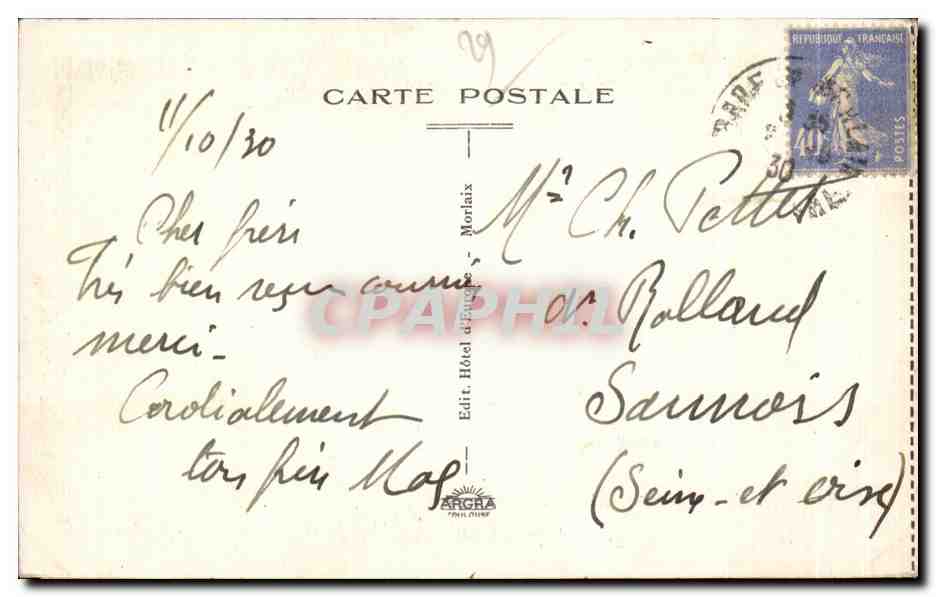 29
CARTE POSTALE
REPUBLIQUE FRANÇAISE
40c
POSTES
30
11/10/30
Cher frère
Très bien reçu courrier
merci -
Cordialement
ton frère
Edit. Hôtel d'Europe - Morlaix
ARGRA
Mr Ch. Pottet
r. Rolland
Sannois
(Seine-et-Oise)
CPAPHIL